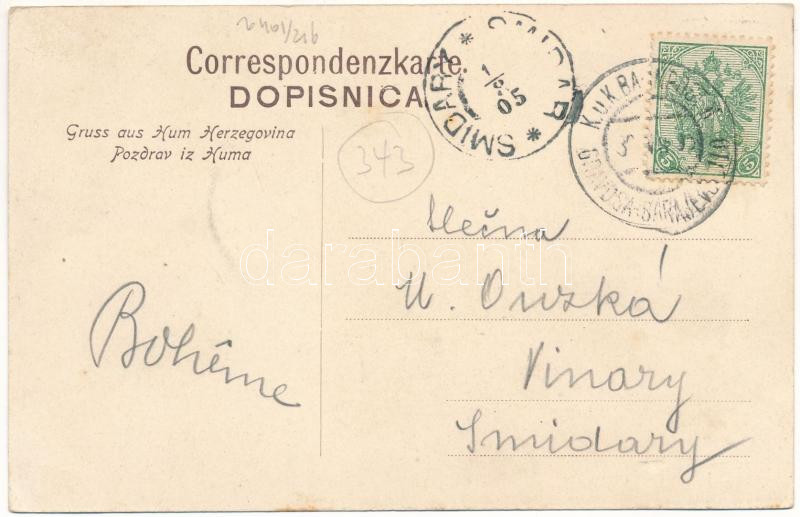 Correspondenzkarte.
DOPISNICA
Gruss aus Hum Herzegovina
Pozdrav iz Huma
343
* SMIDARY *
05
K.u.K.
GRAVOSA-SARAJEVO
5
Slečna
Vinary
Smidary
Bohême
darabanth